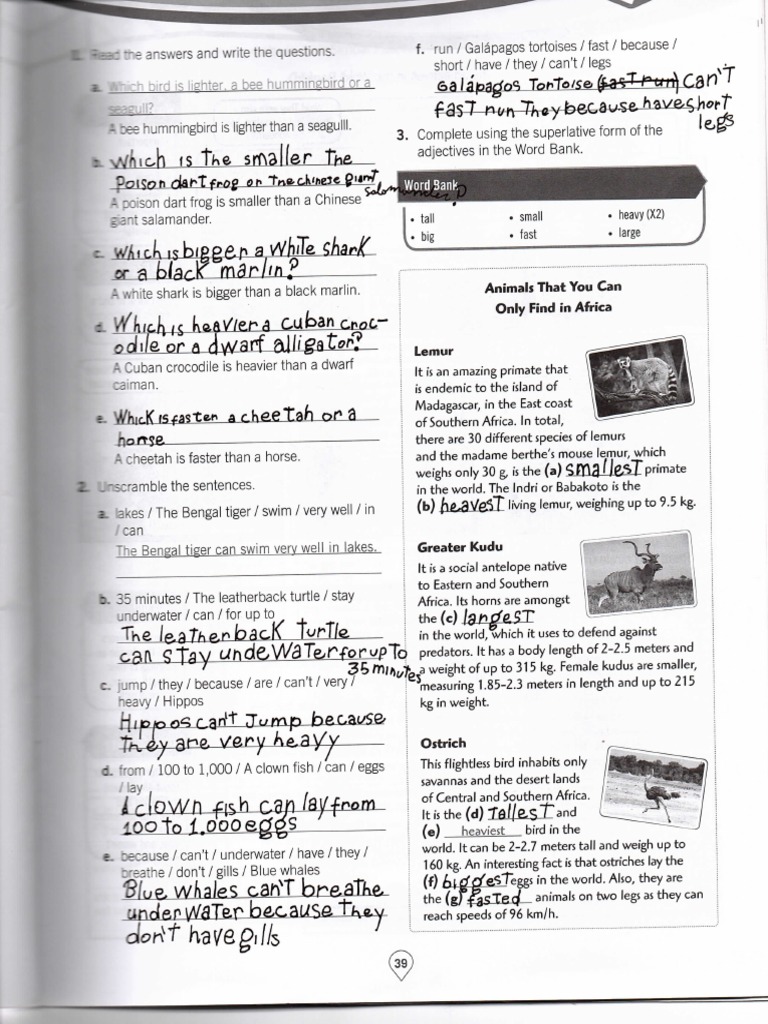 1. Read the answers and write the questions.
a. Which bird is lighter, a bee hummingbird or a
seagull?
A bee hummingbird is lighter than a seagulll.
b. Which is the smaller the
Poison dart frog or the chinese giant
salamander?
A poison dart frog is smaller than a Chinese
giant salamander.
c. Which is bigger a White shark
or a black marlin?
A white shark is bigger than a black marlin.
d. Which is heavier a cuban croc-
odile or a dwarf alligator?
A Cuban crocodile is heavier than a dwarf
caiman.
e. Which is faster a cheetah or a
horse
A cheetah is faster than a horse.
2. Unscramble the sentences.
a. lakes / The Bengal tiger / swim / very well / in
/ can
The Bengal tiger can swim very well in lakes.
b. 35 minutes / The leatherback turtle / stay
underwater / can / for up to
The leatherback turtle
can stay undewater for up to
35 minutes
c. jump / they / because / are / can't / very /
heavy / Hippos
Hippos can't Jump because
They are very heavy
d. from / 100 to 1,000 / A clown fish / can / eggs
/ lay
A clown fish can lay from
100 to 1.000 eggs
e. because / can't / underwater / have / they /
breathe / don't / gills / Blue whales
Blue whales can't breathe
underwater because they
don't have gills
f. run / Galápagos tortoises / fast / because /
short / have / they / can't / legs
Galápagos Tortoise (fast run) can't
fast run They because have short
legs
3. Complete using the superlative form of the
adjectives in the Word Bank.
Word Bank
• tall • small • heavy (X2)
• big • fast • large
Animals That You Can
Only Find in Africa
Lemur
It is an amazing primate that
is endemic to the island of
Madagascar, in the East coast
of Southern Africa. In total,
there are 30 different species of lemurs
and the madame berthe's mouse lemur, which
weighs only 30 g, is the (a) smallest primate
in the world. The Indri or Babakoto is the
(b) heavest living lemur, weighing up to 9.5 kg.
Greater Kudu
It is a social antelope native
to Eastern and Southern
Africa. Its horns are amongst
the (c) largest
in the world, which it uses to defend against
predators. It has a body length of 2-2.5 meters and
a weight of up to 315 kg. Female kudus are smaller,
measuring 1.85-2.3 meters in length and up to 215
kg in weight.
Ostrich
This flightless bird inhabits only
savannas and the desert lands
of Central and Southern Africa.
It is the (d) Tallest and
(e) heaviest bird in the
world. It can be 2-2.7 meters tall and weigh up to
160 kg. An interesting fact is that ostriches lay the
(f) biggest eggs in the world. Also, they are
the (g) fasted animals on two legs as they can
reach speeds of 96 km/h.
39